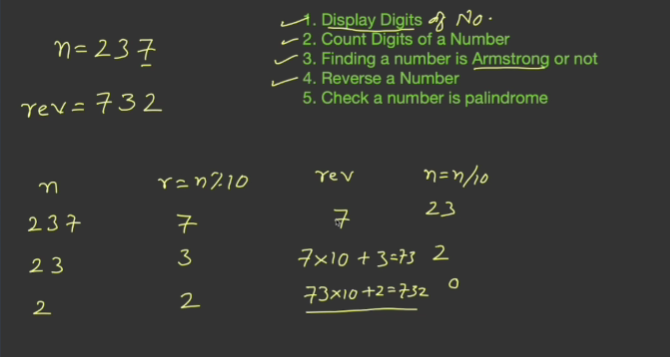 1. Display Digits of No.
2. Count Digits of a Number
3. Finding a number is Armstrong or not
4. Reverse a Number
5. Check a number is palindrome
n=237
rev=732
n r=n%10 rev n=n/10
237 7 7 23
23 3 7×10+3=73 2
2 2 73×10+2=732 0